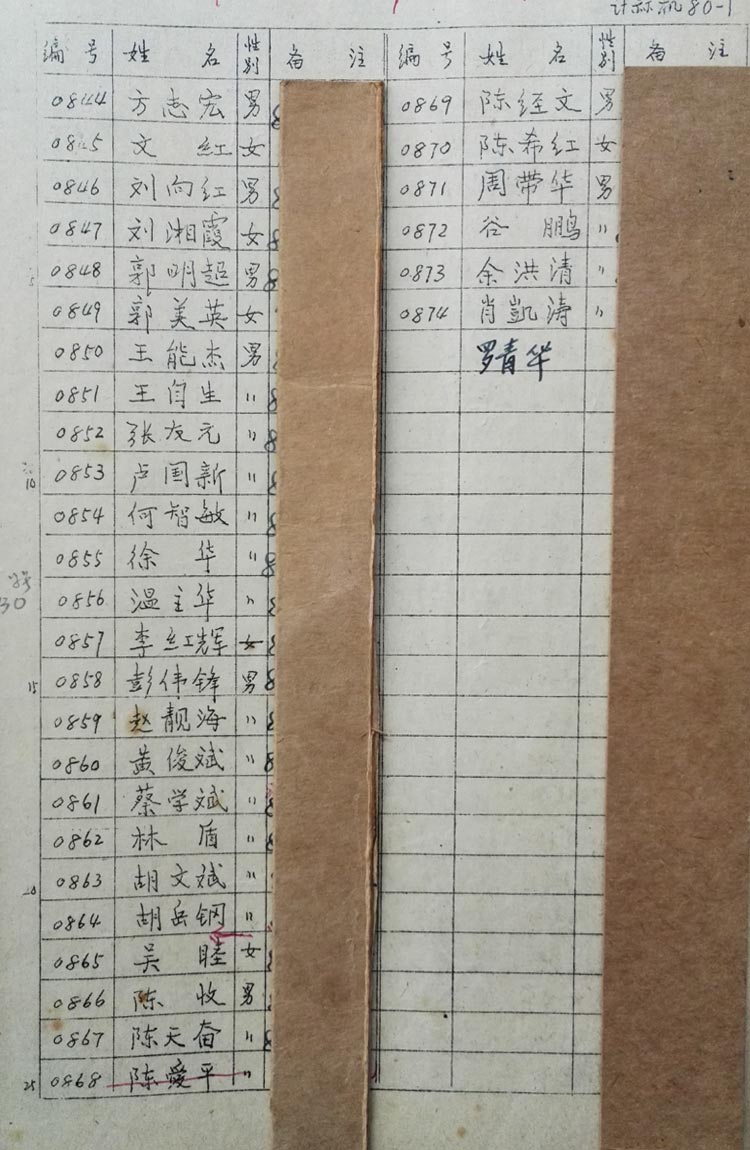 计标机80-1
编号 姓名 性别 备注
0844 方志宏 男
0845 文红 女
0846 刘向红 男
0847 刘湘霞 女
0848 郭明超 男
0849 郭美英 女
0850 王能杰 男
0851 王自生 〃
0852 张友元 〃
0853 卢国新 〃
0854 何智敏 〃
0855 徐华 〃
0856 温主华 〃
0857 李红辉 女
0858 彭伟锋 男
0859 赵靓海 〃
0860 黄俊斌 〃
0861 蔡学斌 〃
0862 林盾 〃
0863 胡文斌 〃
0864 胡岳钢 〃
0865 吴睦 女
0866 陈收 男
0867 陈天奋 〃
0868 陈爱平 〃
编号 姓名 性别 备注
0869 陈经文 男
0870 陈希红 女
0871 周带华 男
0872 谷鹏 〃
0873 余洪清 〃
0874 肖凯涛 〃
罗青华
5
10
15
20
25
30